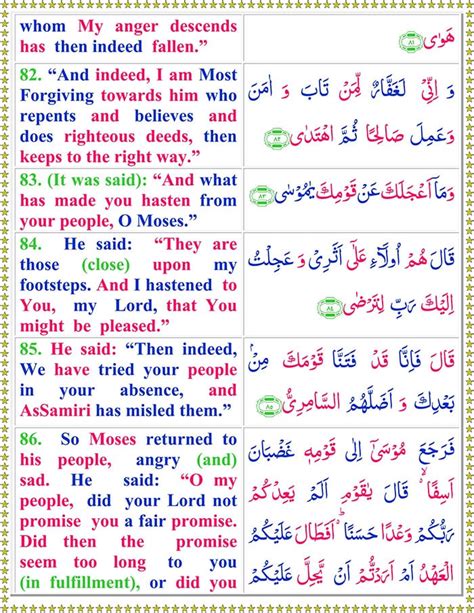 whom My anger descends
has then indeed fallen.”
هَوٰى ﴿٨١﴾
82. “And indeed, I am Most
Forgiving towards him who
repents and believes and
does righteous deeds, then
keeps to the right way.”
وَ اِنِّىْ لَغَفَّارٌ لِّمَنْ تَابَ وَ اٰمَنَ
وَعَمِلَ صَالِحًا ثُمَّ اهْتَدٰى ﴿٨٢﴾
83. (It was said): “And what
has made you hasten from
your people, O Moses.”
وَمَاۤ اَعْجَلَكَ عَنْ قَوْمِكَ يٰمُوْسٰى ﴿٨٣﴾
84. He said: “They are
those (close) upon my
footsteps. And I hastened to
You, my Lord, that You
might be pleased.”
قَالَ هُمْ اُولَاۤءِ عَلٰٓى اَثَرِىْ وَ عَجِلْتُ
اِلَيْكَ رَبِّ لِتَرْضٰى ﴿٨٤﴾
85. He said: “Then indeed,
We have tried your people
in your absence, and
AsSamiri has misled them.”
قَالَ فَاِنَّا قَدْ فَتَنَّا قَوْمَكَ مِنْۢ
بَعْدِكَ وَ اَضَلَّهُمُ السَّامِرِىُّ ﴿٨٥﴾
86. So Moses returned to
his people, angry (and)
sad. He said: “O my
people, did your Lord not
promise you a fair promise.
Did then the promise
seem too long to you
(in fulfillment), or did you
فَرَجَعَ مُوْسٰٓى اِلٰى قَوْمِهٖ غَضْبَانَ
اَسِفًا ۚ قَالَ يٰقَوْمِ اَلَمْ يَعِدْكُمْ
رَبُّكُمْ وَعْدًا حَسَنًا ۚ اَفَطَالَ عَلَيْكُمُ
الْعَهْدُ اَمْ اَرَدْتُّمْ اَنْ يَّحِلَّ عَلَيْكُمْ